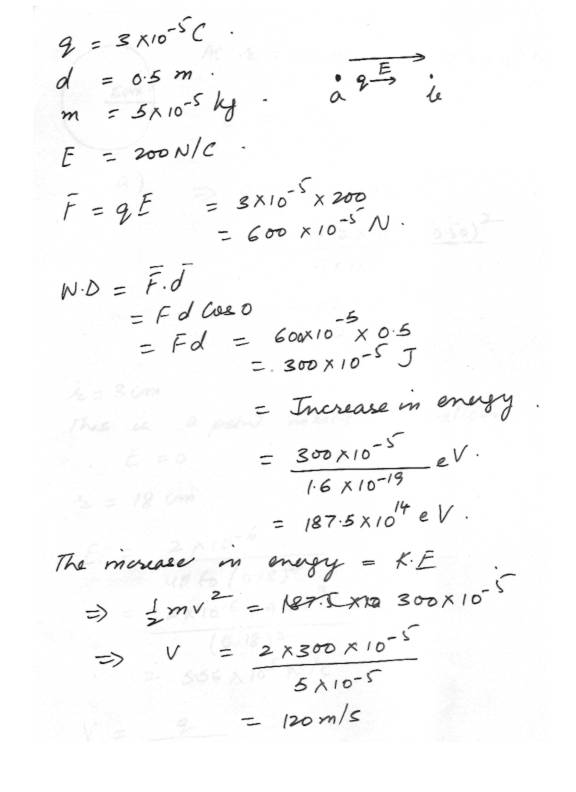 q = 3×10⁻⁵C .
d = 0.5 m .
m = 5×10⁻⁵ kg .
E = 200 N/C .
a q E b
F̄ = qE = 3×10⁻⁵ × 200
= 600 × 10⁻⁵ N .
W.D = F̄.d̄
= Fd Cos 0
= Fd = 600×10⁻⁵ × 0.5
= 300 × 10⁻⁵ J
= Increase in energy .
= 300×10⁻⁵ / 1.6 × 10⁻¹⁹ eV .
= 187.5×10¹⁴ eV .
The increase in energy = K.E
⇒ ½mv² = 187.5 ×10 300×10⁻⁵
⇒ V = 2×300 × 10⁻⁵ / 5×10⁻⁵
= 120 m/s